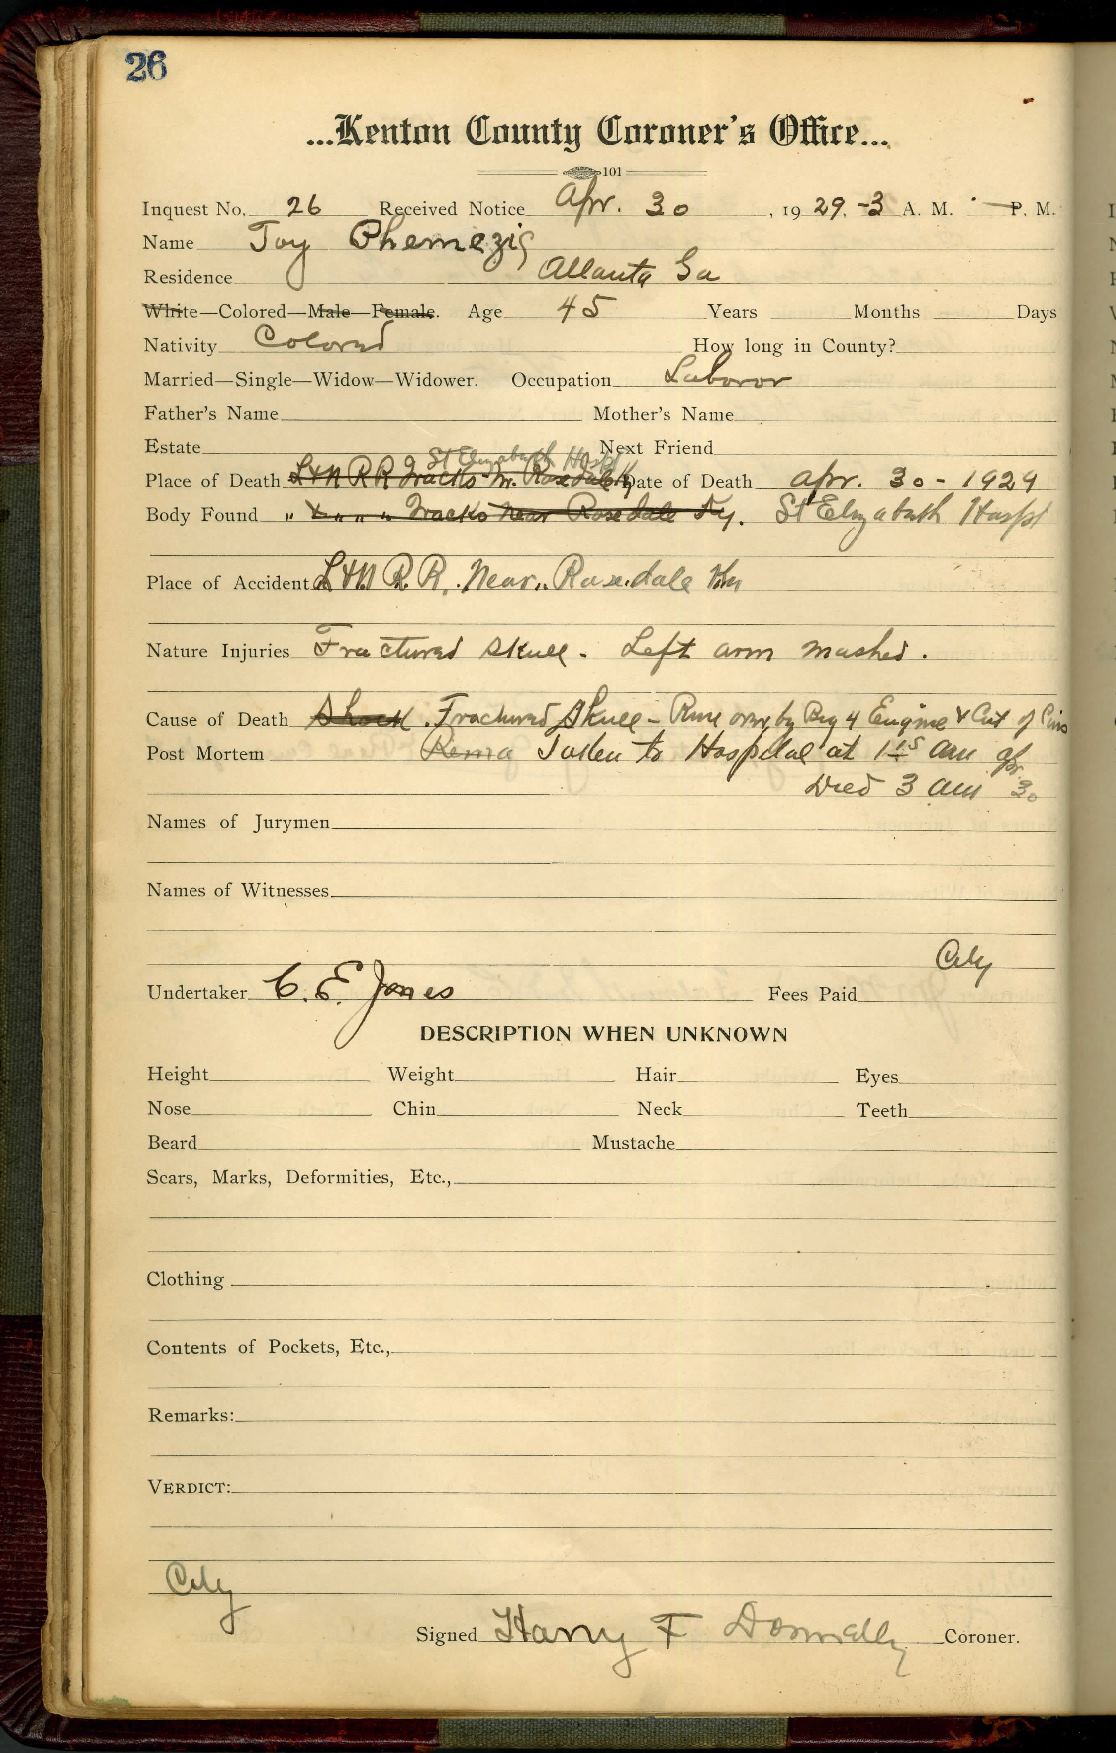 26
...Kenton County Coroner's Office...
101
Inquest No. 26 Received Notice Apr. 30, 1929. -3 A. M. — P. M.
Name Toy Phemezis
Residence Atlanta Ga
White—Colored—Male—Female. Age 45 Years Months Days
Nativity Colored How long in County?
Married—Single—Widow—Widower. Occupation Laboror
Father's Name Mother's Name
Estate Next Friend
St Elizabeth Hospt
Place of Death L & N R R Tracks nr. Rosedale Ky Date of Death Apr. 30 - 1929
Body Found " " " " Tracks near Rosedale Ky. St Elizabeth Hospt
Place of Accident L & N R. R. Near Rosedale Ky
Nature Injuries Fractured Skull - Left arm mashed.
Cause of Death Shock . Fractured Skull - Run over by Big 4 Engine & Cut of Cars
Post Mortem Taken to Hospital at 1 15 am Apr. 30
Died 3 am
Names of Jurymen
Names of Witnesses
City
Undertaker C. E. Jones Fees Paid
DESCRIPTION WHEN UNKNOWN
Height Weight Hair Eyes
Nose Chin Neck Teeth
Beard Mustache
Scars, Marks, Deformities, Etc.,
Clothing
Contents of Pockets, Etc.,
Remarks:
VERDICT:
City
Signed Harry F Donnelly Coroner.